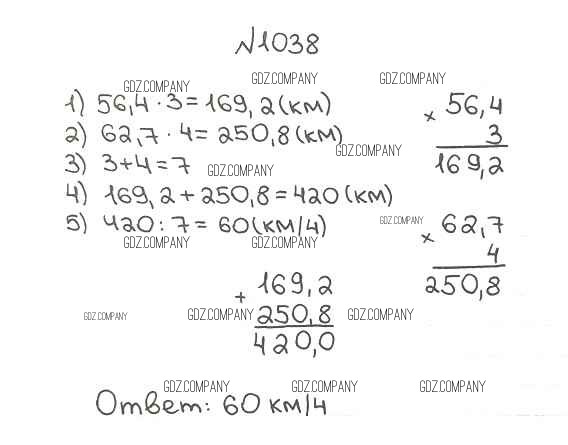 №1038
GDZ.COMPANY GDZ.COMPANY GDZ.COMPANY
1) 56,4 · 3 = 169,2 (км)
2) 62,7 · 4 = 250,8 (км)
GDZ.COMPANY
3) 3+4=7
GDZ.COMPANY
4) 169,2 + 250,8 = 420 (км)
5) 420 : 7 = 60 (км/ч)
GDZ.COMPANY GDZ.COMPANY
× 56,4
3
169,2
GDZ.COMPANY
× 62,7
4
250,8
+ 169,2
250,8
420,0
GDZ.COMPANY GDZ.COMPANY GDZ.COMPANY
GDZ.COMPANY GDZ.COMPANY GDZ.COMPANY
Ответ: 60 км/ч